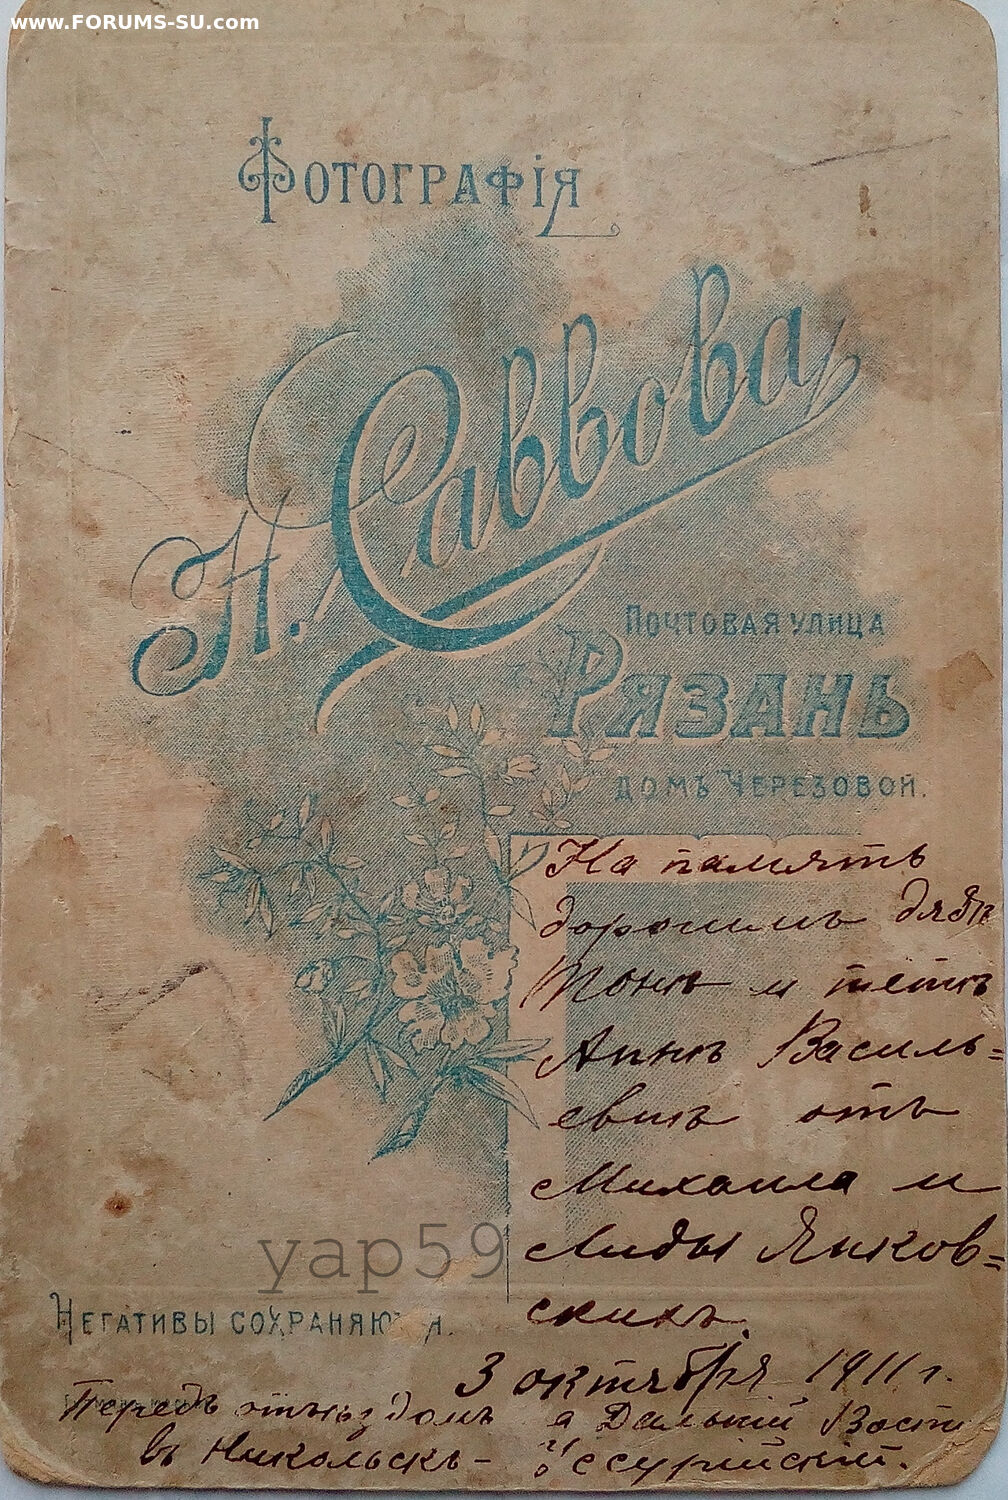 www.FORUMS-SU.com
Фотографія
Н. Саввова
Почтовая улица
Рязань
домъ Черезовой.
На память
дорогимъ дядѣ
Тонѣ и тетѣ
Аннѣ Василь=
евнѣ отъ
Михаила и
Лиды Янков=
скихъ.
yap59
Негативы сохраняются.
3 октября 1911 г.
Передъ отъѣздомъ а Дальній Восто
въ Никольскъ- Уссурійскій.